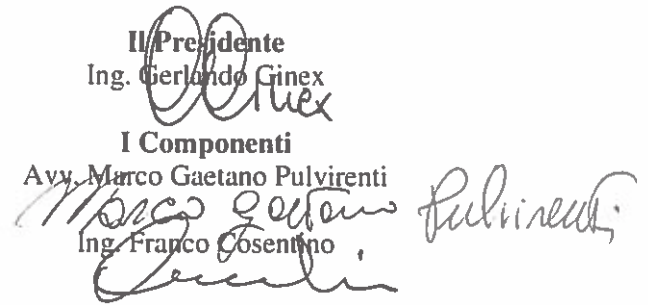 Il Presidente
Ing. Gerlando Ginex
Ginex
I Componenti
Avv. Marco Gaetano Pulvirenti
Marco Gaetano Pulvirenti
Ing. Franco Cosentino